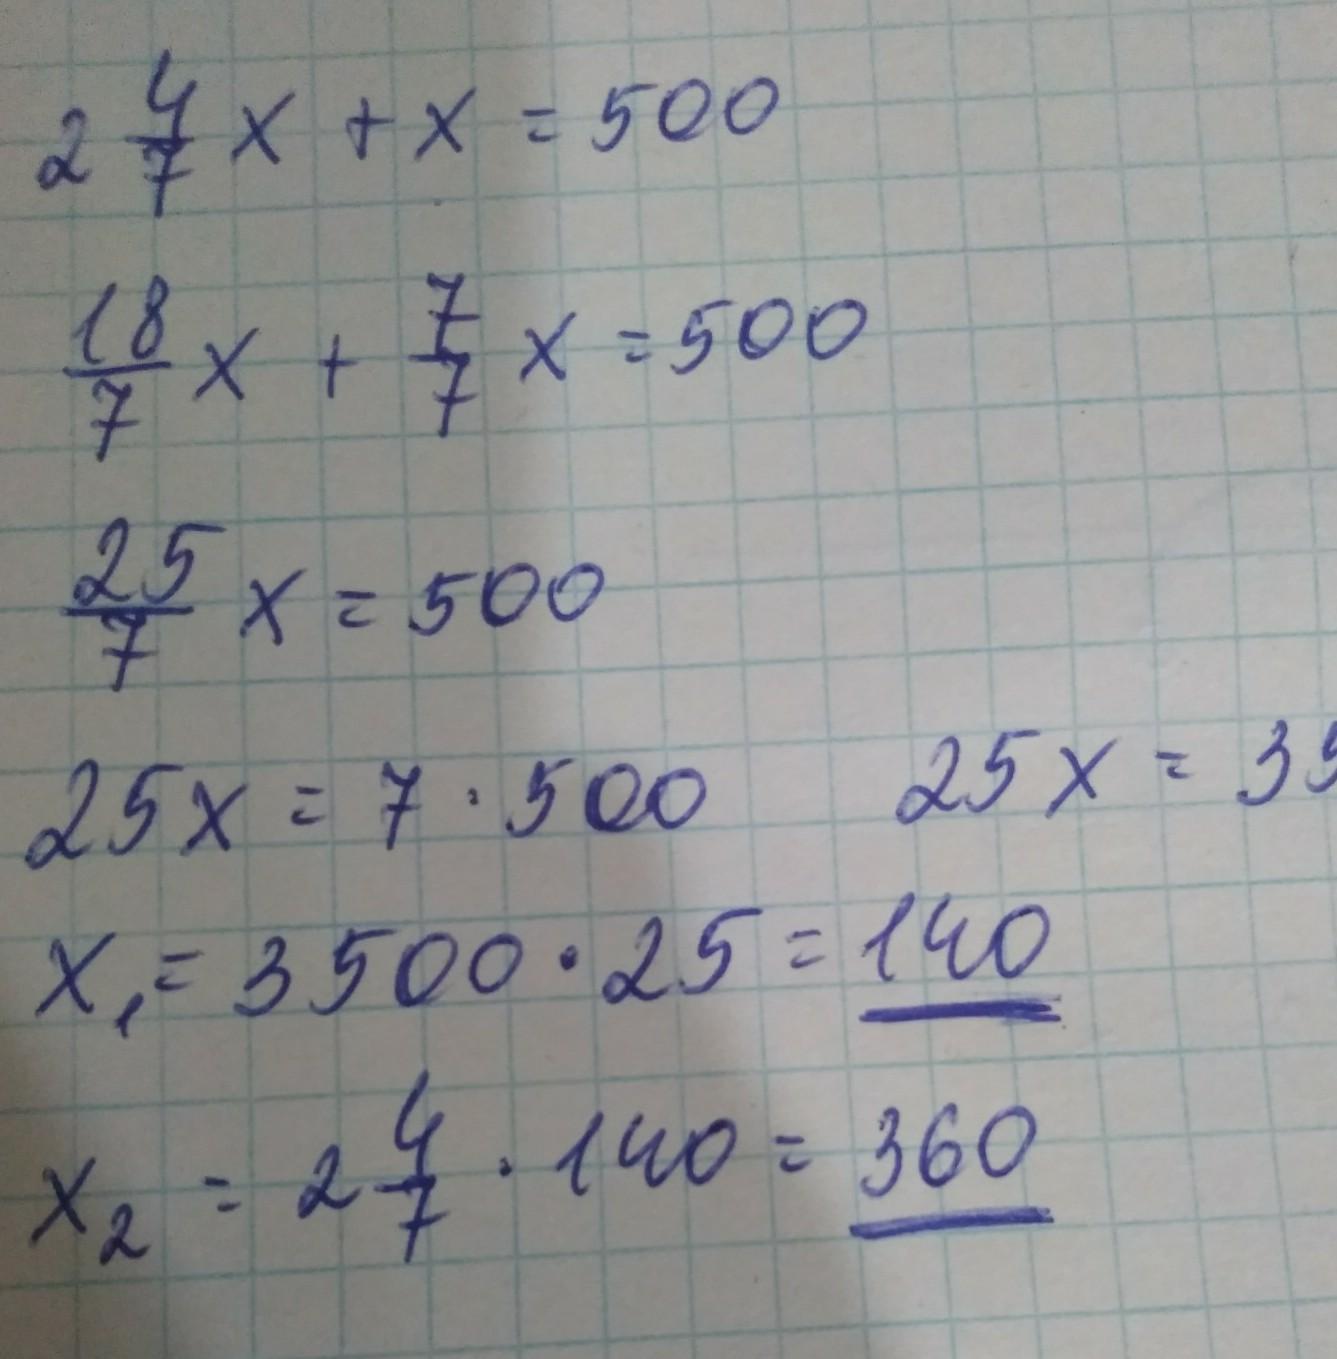 2 4/7 x + x = 500
18/7 x + 7/7 x = 500
25/7 x = 500
25x = 7 · 500 25x = 35
x₁ = 3500 · 25 = 140
x₂ = 2 4/7 · 140 = 360